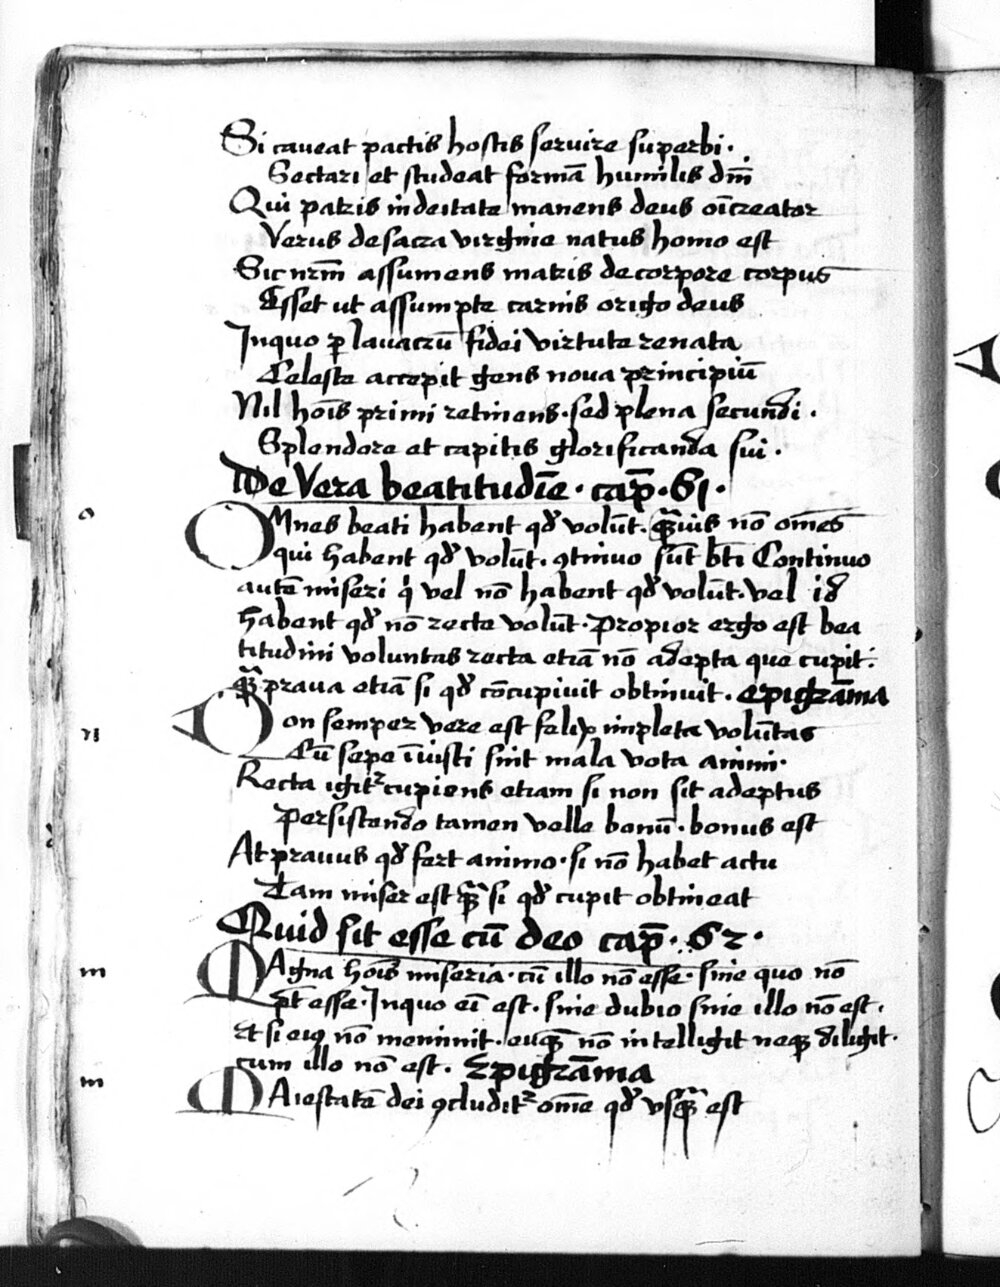 Si caveat pactis hostis servire superbi.
Sectari et studeat formā humilis dnī
Qui patris in deitate manens deus oīcreator
Verus de sacra virgine natus homo est
Sic nrm̄ assumens matris de corpore corpus
Esset ut assumpte carnis origo deus
In quo p lavacrū fidei virtute renata
Celeste accepit gens nova principiū
Nil hoīs primi retinens. sed plena secundi.
Splendore et capitis glorificanda sui.
De Vera beatitudīe. cap̄. 61.
o
OMnes beati habent qđ volūt. quāuis nō omēs
qui habent qđ volūt. ꝯtinuo sūt bt̄i Continuo
autē miseri qͥ vel nō habent qđ volūt. vel id
habent qđ nō recte volūt. Propior ergo est bea
titudini voluntas recta etiā nō adepta que cupit.
qᷓ prava etiā si qđ cōcupivit obtinuit. epigrāma
n
on semper vere est felix inpleta volūtas
Cū sepe īiusti sint mala vota animi.
Recta igitᷣ cupiens etiam si non sit adeptus
Persistendo tamen velle bonū. bonus est
At pravus qđ fert animo. si nō habet actu
Tam miser est qᷓ si qđ cupit obtineat
Quid sit esse cū deo cap̄. 62.
m
MAgna hoīs miseria. cū illo nō esse. sine quo nō
pt̄ esse. In quo eī est. sine dubio sine illo nō est.
Et si eiꝰ nō meminit. eūqꝫ nō intelligit neqꝫ diligit.
cum illo nō est. Epigrāma
m
MAiestatē dei ꝯcluditᷣ om̄e qđ usqᷓ est